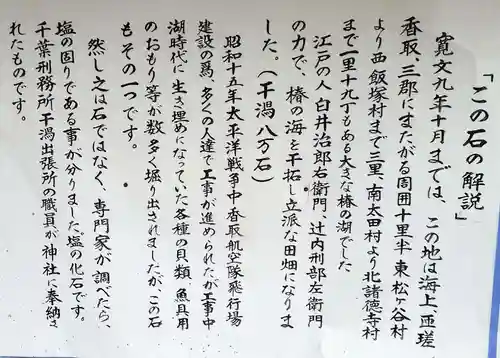 「この石の解説」
寛文九年十月までは、この地は海上、匝瑳
香取、三郡にまたがる周囲十里半東松ヶ谷村
より西飯塚村まで三里、南太田村より北諸徳寺村
まで一里十九丁もある大きな椿の湖でした
江戸の人白井治郎右衛門、辻内刑部左衛門
の力で、椿の海を干拓し立派な田畑になりま
した。(干潟八万石)
昭和十五年太平洋戦争中香取航空隊飛行場
建設の為、多くの人達で工事が進められたが工事中
湖時代に生き埋めになっていた各種の貝類、魚具用
のおもり等が数多く堀り出されましたが、この石
もその一つです。
然し之は石ではなく、専門家が調べたら、
塩の固りである事が分りました塩の化石です。
千葉刑務所干潟出張所の職員が神社に奉納さ
れたものです。